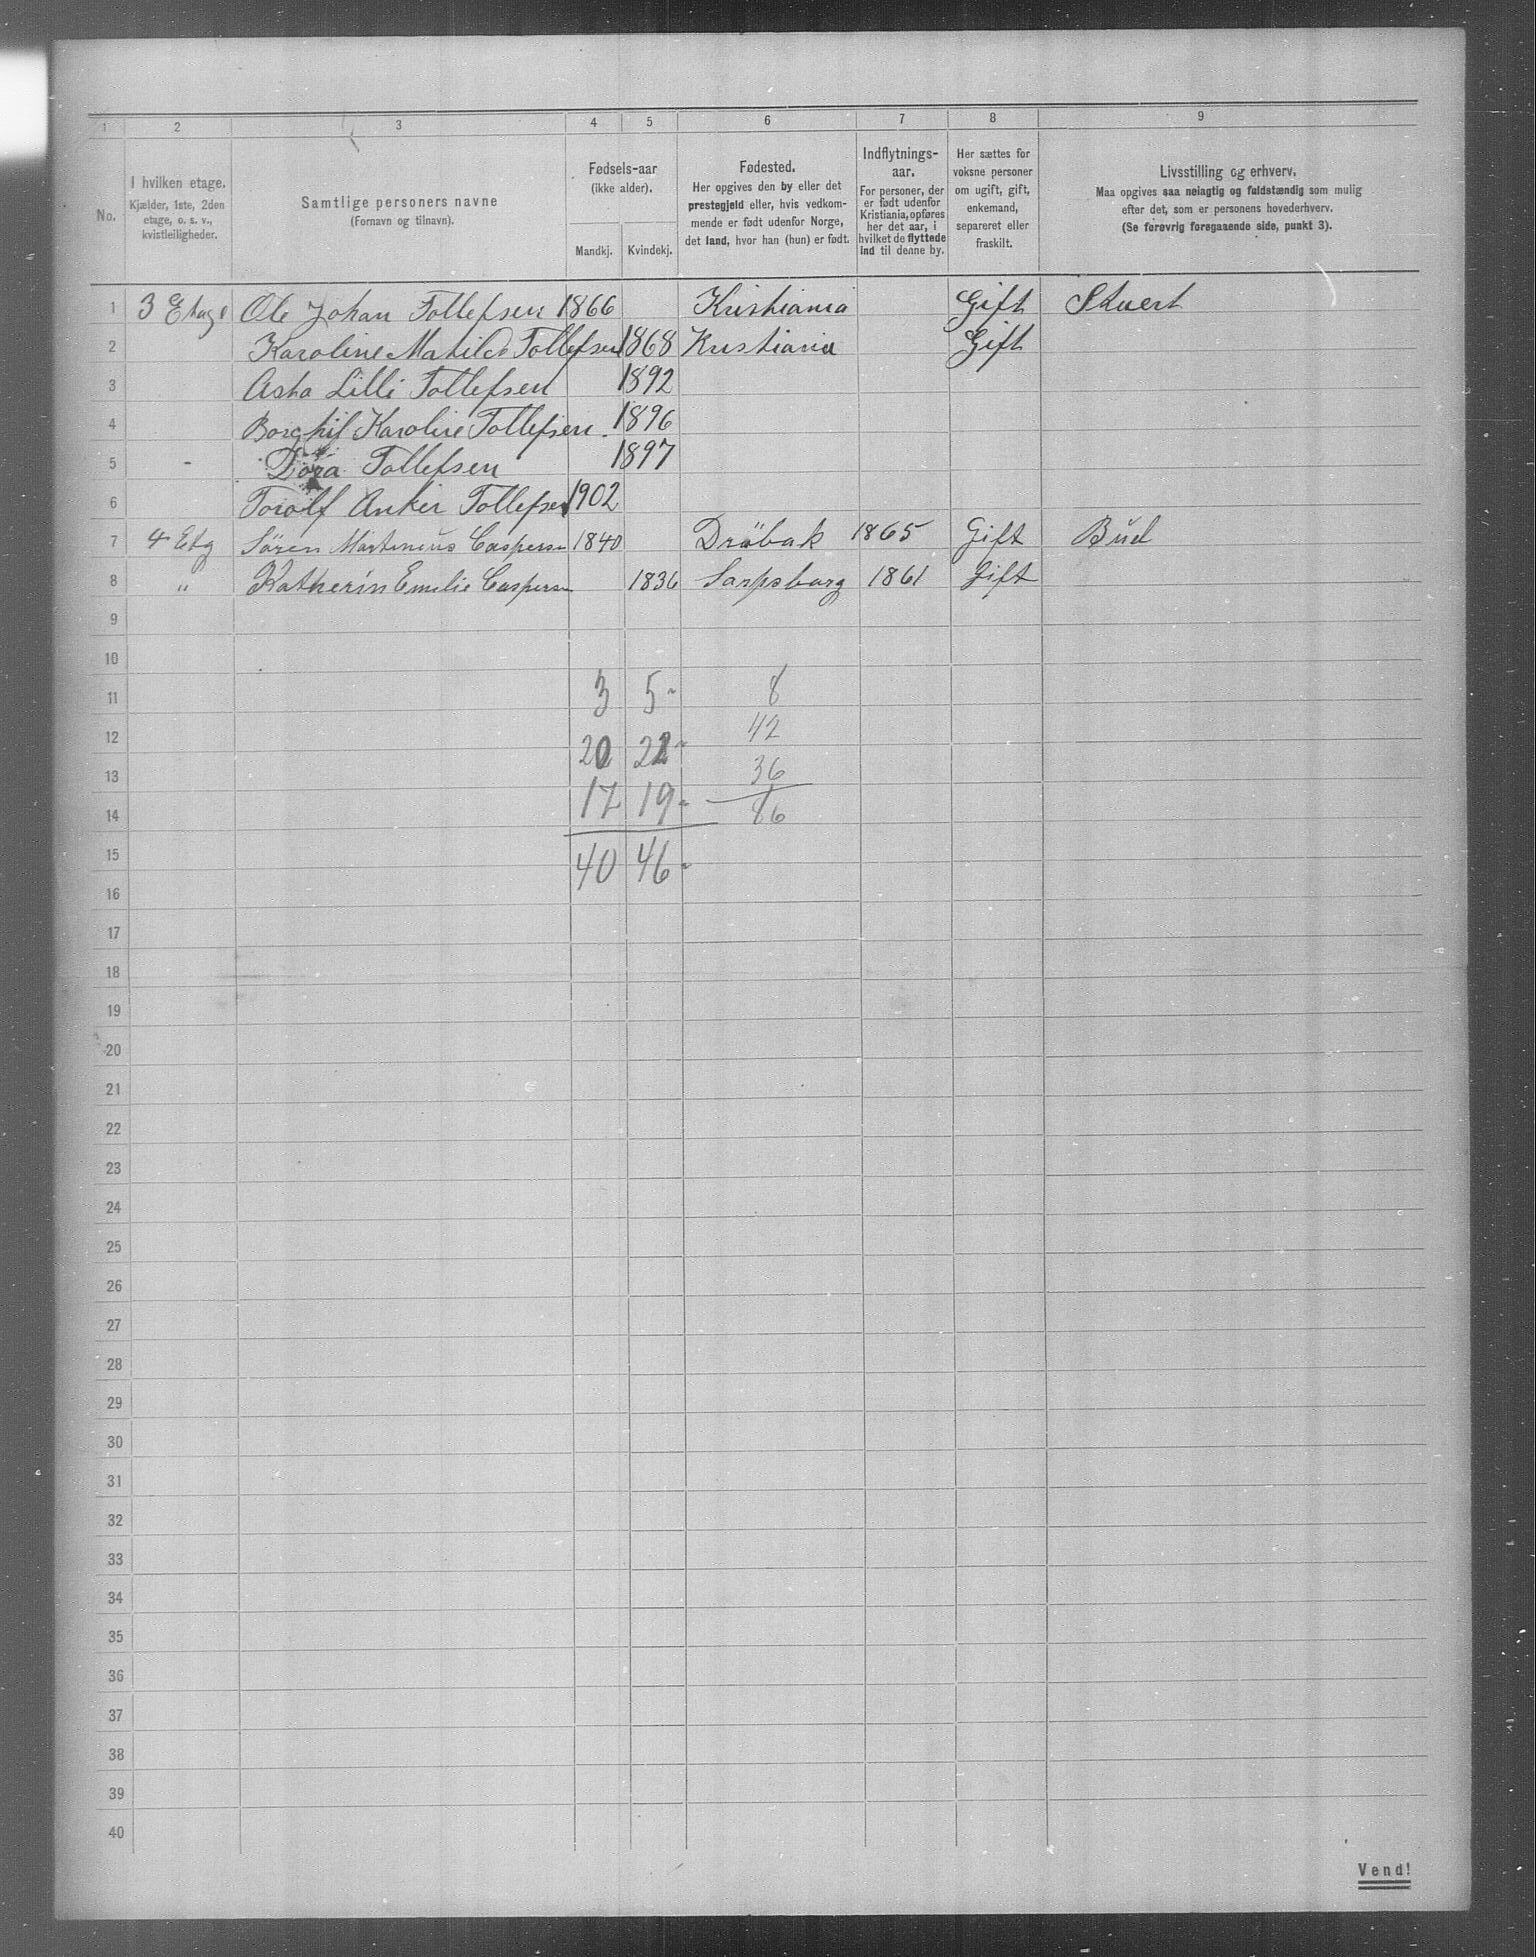 1 2 3 4 5 6 7 8 9
No.
I hvilken etage.
Kjælder, 1ste, 2den
etage, o. s. v.,
kvistleiligheder.
Samtlige personers navne
(Fornavn og tilnavn).
Fødsels-aar
(ikke alder).
Mandkj. Kvindekj.
Fødested.
Her opgives den by eller det
prestegjeld eller, hvis vedkom-
mende er født udenfor Norge,
det land, hvor han (hun) er født.
Indflytnings-
aar.
For personer, der
er født udenfor
Kristiania, opføres
her det aar, i
hvilket de flyttede
ind til denne by.
Her sættes for
voksne personer
om ugift, gift,
enkemand,
separeret eller
fraskilt.
Livsstilling og erhverv.
Maa opgives saa nøiagtig og fuldstændig som mulig
efter det, som er personens hovederhverv.
(Se forøvrig foregaaende side, punkt 3).
1 3 Etage Ole Johan Tollefsen 1866 Kristiania Gift Stuert
2 Karoline Matilde Tollefsen 1868 Kristiania Gift
3 Asta Lilli Tollefsen 1892
4 Borghil Karoline Tollefsen. 1896
5 - Dora Tollefsen 1897
6 Torolf Anker Tollefsen 1902
7 4 Etg Sören Martenius Caspersen 1840 Dröbak 1865 Gift Bud
8 " Katherin Emilie Caspersen 1836 Sarpsborg 1861 Gift
9
10
11 3 5 8
12 20 22 42
13 36
14 17 19 86
15 40 46
16
17
18
19
20
21
22
23
24
25
26
27
28
29
30
31
32
33
34
35
36
37
38
39
40
Vend!